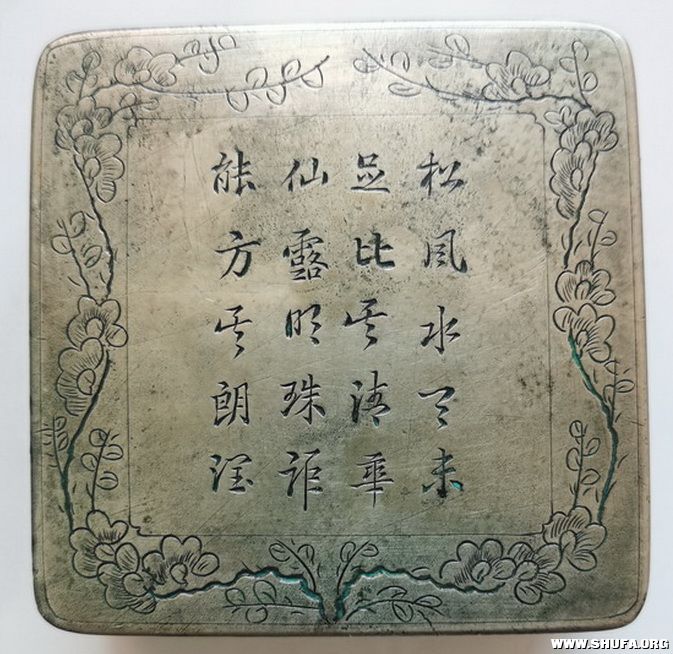 松風水月未
足比其清華
仙露明珠詎
能方其朗潤
WWW.SHUFA.ORG